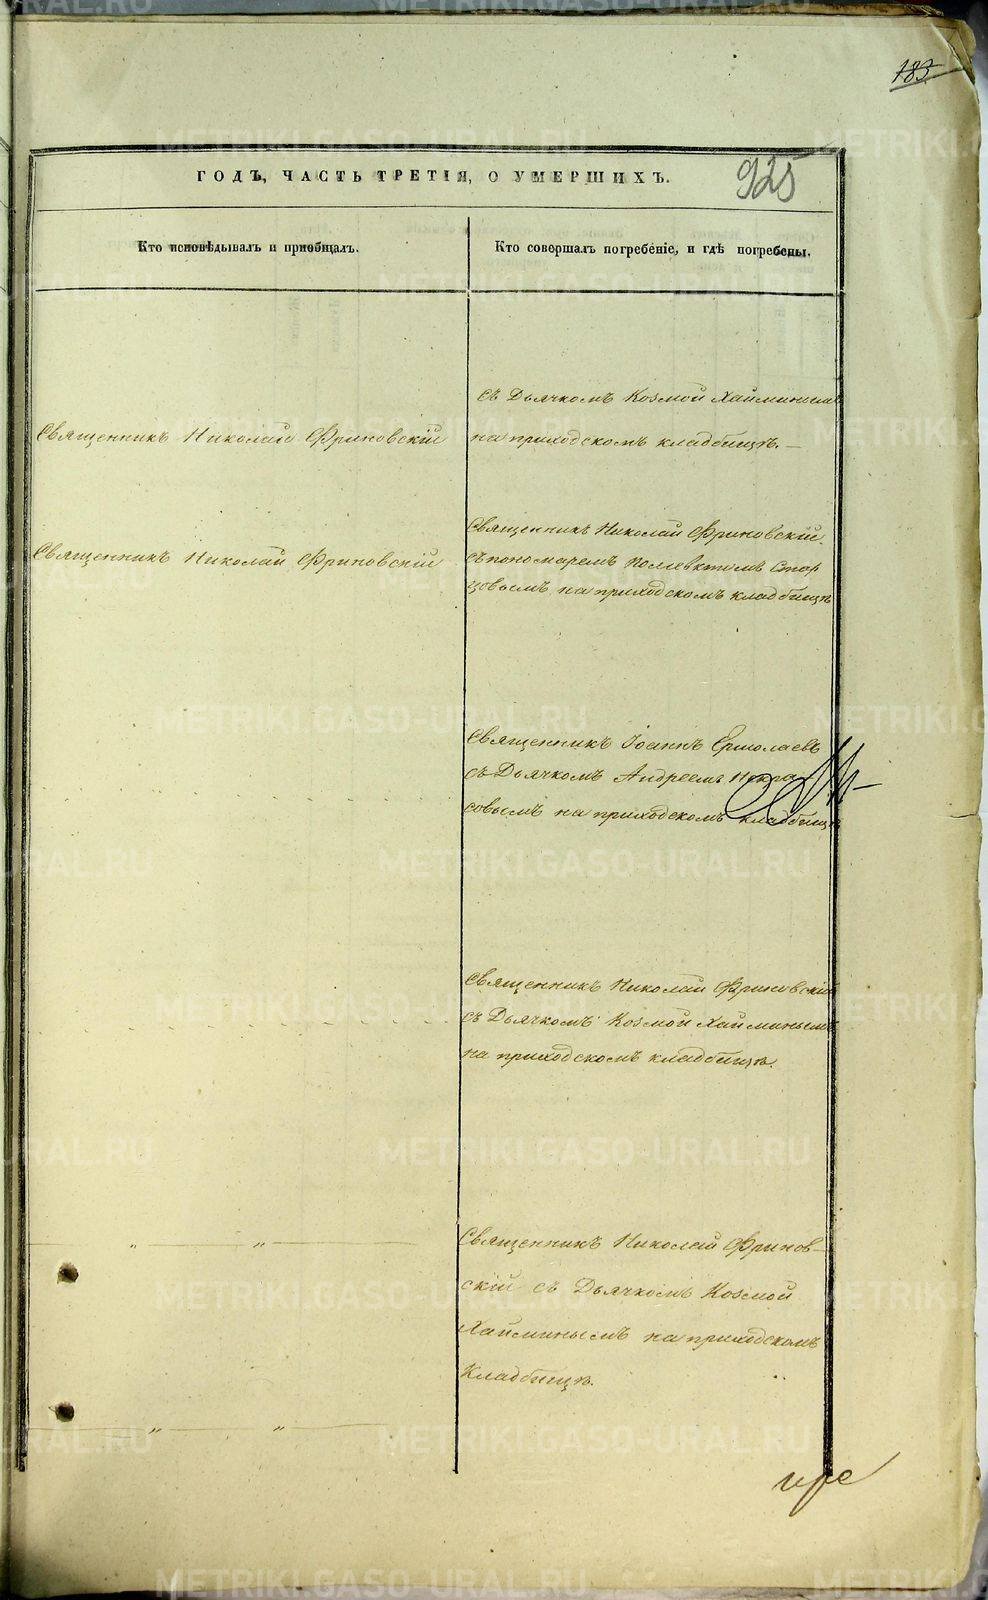 183
925
ГОДЪ, ЧАСТЬ ТРЕТІЯ, О УМЕРШИХЪ.
Кто исповѣдывалъ и пріобщалъ.
Кто совершалъ погребеніе, и гдѣ погребены.
съ Дьячкомъ Козмой Хайминымъ
Священникъ Николай Фриновскій
на приходскомъ кладбищѣ.
Священникъ Николай Фриновскій
Священникъ Николай Фриновскій
съ пономаремъ Полиевктомъ Стар
цовымъ на приходскомъ кладбищѣ
Священникъ Іоаннъ Ермолаевъ
съ Дьячкомъ Андреемъ Некра
совымъ на приходскомъ кладбищѣ
Священникъ Николай Фриновскій
съ Дьячкомъ Козмой Хайминымъ
на приходскомъ кладбищѣ.
Священникъ Николай Фринов-
скій съ Дьячкомъ Козмой
Хайминымъ на приходскомъ
Кладбищѣ.
METRIKI.GASO-URAL.RU